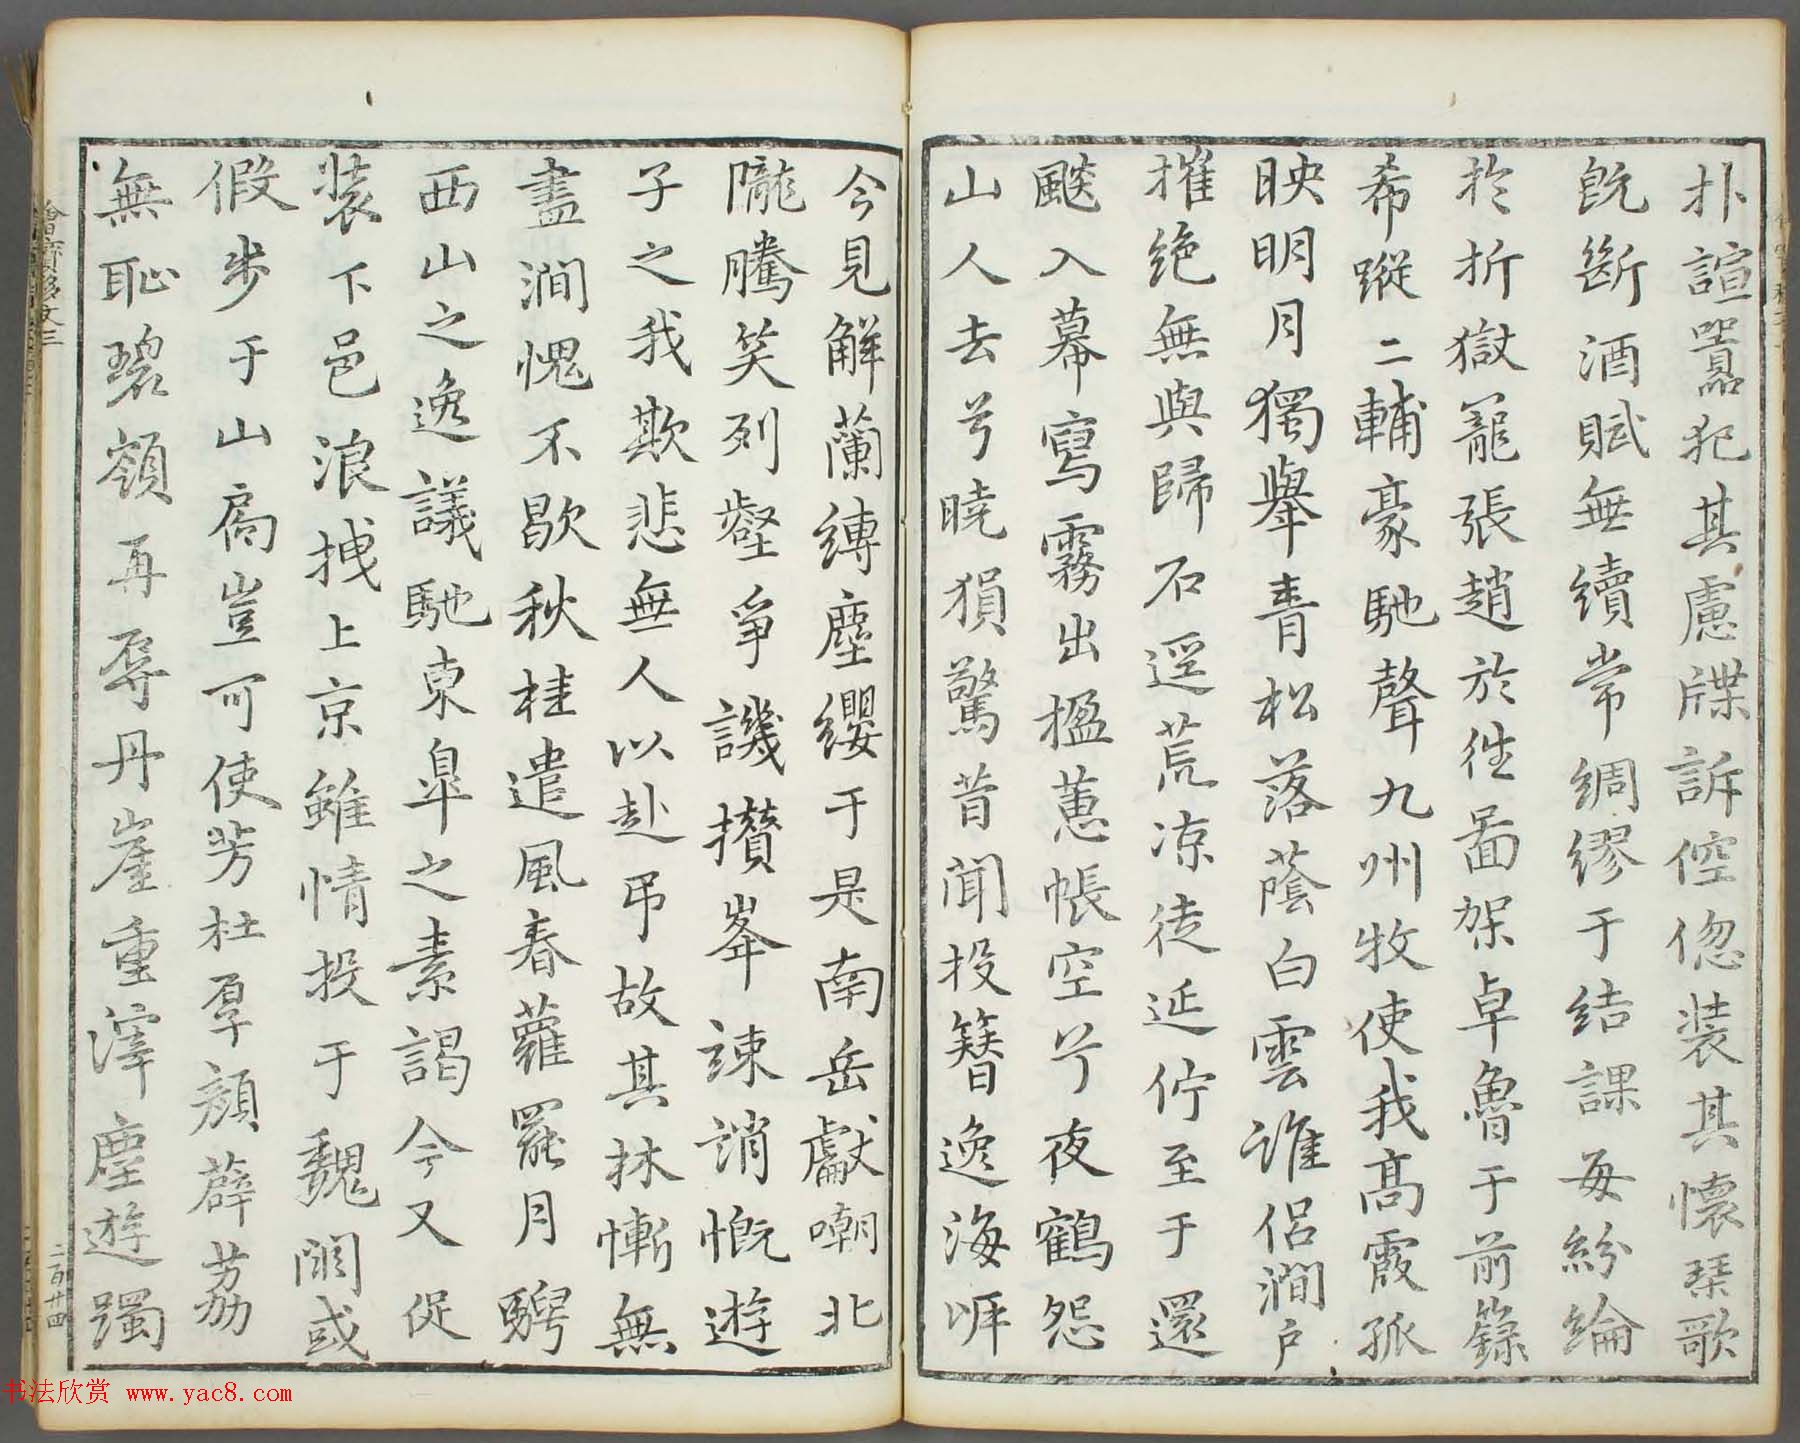 扑諠囂犯其慮牒訴倥偬装其懷琴歌
既斷酒賦無續常綢繆于結課每紛綸
扵折獄籠張趙於往啚架卓魯于前籙
希蹤二輔豪馳聲九州牧使我高霞孤
映明月獨舉青松落蔭白雲誰侶澗户
摧绝無與歸石逕荒凉徒延佇至于還
飈入幕寫霧出楹蕙帳空兮夜鶴怨
山人去兮曉猨驚昔聞投簪逸海岸
今見解蘭縛塵纓于是南岳獻嘲北
隴騰笑列壑爭譏攢峯竦誚慨遊
子之我欺悲無人以赴弔故其林慚無
盡澗愧不歇秋桂遣風春蘿罷月騁
西山之逸議馳東皐之素謁今又促
装下邑浪拽上京雖情投于魏闕或
假步于山扃豈可使芳杜厚顏薜荔
無恥碧嶺再辱丹崖重滓塵遊躅
二百廿四
书法欣赏 www.yac8.com